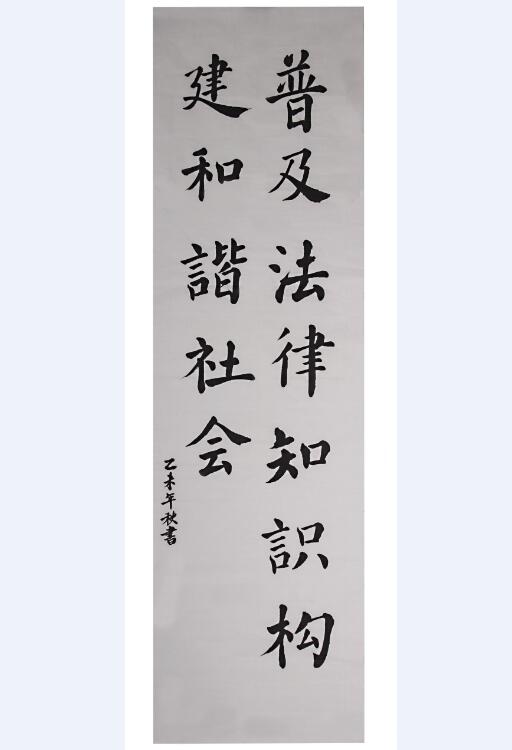 普及法律知识构
建和谐社会
乙未年秋書